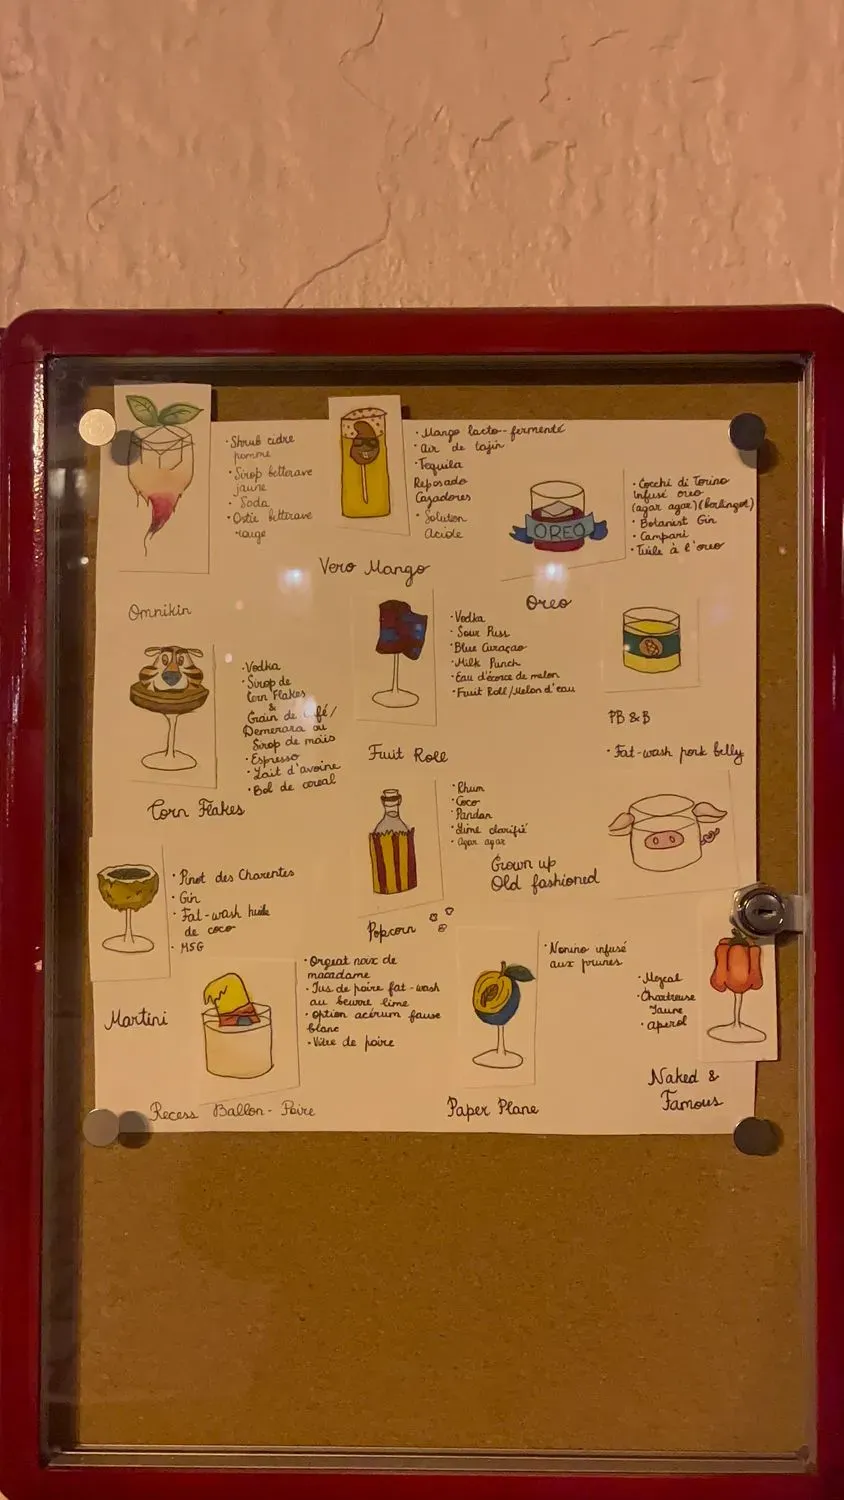 · Shrub cidre
pomme
· Sirop betterave
jaune
· Soda
· Ostie betterave
rouge
Omnikin
· Mango lacto-fermenté
· Air de tajin
· Tequila
Reposado
Cazadores
· Solution
Acide
Vero Mango
OREO
· Cocchi di Torino
Infusé oreo
(agar agar) (berlingot)
· Botanist Gin
· Campari
· Tuile à l'oreo
Oreo
· Vodka
· Sirop de
Corn Flakes
&
Grain de café/
Demerara ou
Sirop de maïs
· Espresso
· Lait d'avoine
· Bol de cereal
Corn Flakes
· Vodka
· Sour Puss
· Blue Curaçao
· Milk Punch
· Eau d'écorce de melon
· Fruit Roll/Melon d'eau
Fruit Roll
PB & B
· Fat-wash pork belly
Grown up
Old fashioned
· Rhum
· Coco
· Pandan
· Lime clarifié
· Agar agar
Popcorn
· Pinot des Charentes
· Gin
· Fat-wash huile
de coco
· MSG
Martini
· Orgeat noix de
macadame
· Jus de poire fat-wash
au beurre lime
· Option acérum fausse
blanc
· Vitre de poire
Recess Ballon-Poire
· Nonino infusé
aux prunes
Paper Plane
· Mezcal
· Chartreuse
Jaune
· Aperol
Naked &
Famous